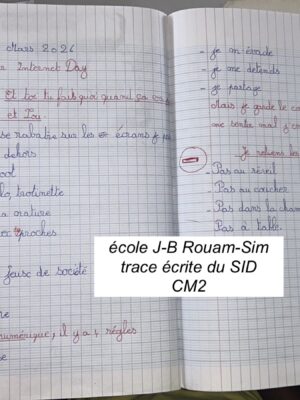 Mars 2026
Internet Day
Et toi tu fais quoi quand ça
et Lou.
se rabatre sur les écrans je
dehors
oot
lo, trotinette
a orature
proches
jeuse de société
re
numérique, il y a 4 règles
se
- je m'évade
- je me détends
- je partage
Mais je garde le co
me sentir mal
Je retiens les
- Pas au réveil
- Pas au coucher
- Pas dans la cham
- Pas à table.
école J-B Rouam-Sim
trace écrite du SID
CM2